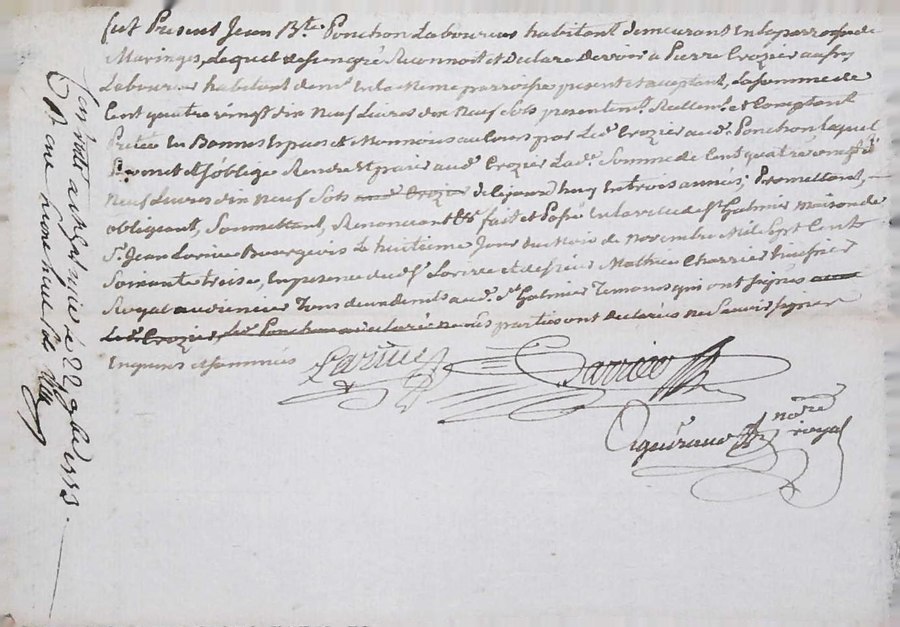 fut Present Jean Bte. Ponchon Laboureur habitant demeurant En la parroisse de
Maringes, Lequel de son gré Reconnoit et Declare Devoir a Pierre Crozier aussy
Laboureur habitant demt. En la Meme parroisse present et acceptant, La somme de
Cent quatre vingt dix Neuf Livres dix Neuf sols presentemt. Reellemt. et Comptant
Pretée En Bonnes Especes et Monnoies au Cours par Led. Crozier aud. Ponchon, Lequel
Promet et s'oblige Rendre Et paier aud. Crozier Lad. Somme de Cent quatre vingt dix
Neuf Livres dix Neuf Sols aud. Crozier de Cejourd'huy En trois années; Promettant,
obligeant, Soumettant, Renonceant &a fait et Passé En la ville de St. Galmier Maison de
Sr. Jean Bourgeois Le huitieme Jour du Mois de Novembre Mil Sept Cent
Soixante treise, En presence dud. Sr. et de sieur Mathieu Charrier huissier
Royal audiencier Tous deux dud. St. Galmier Temoins qui ont Signés
Led. Crozier, Led. Ponchon Les parties ont declarés ne Savoir Signer
Enquises et sommées
nore.
royal
Controllé a St. galmier le 22 9bre 1773.